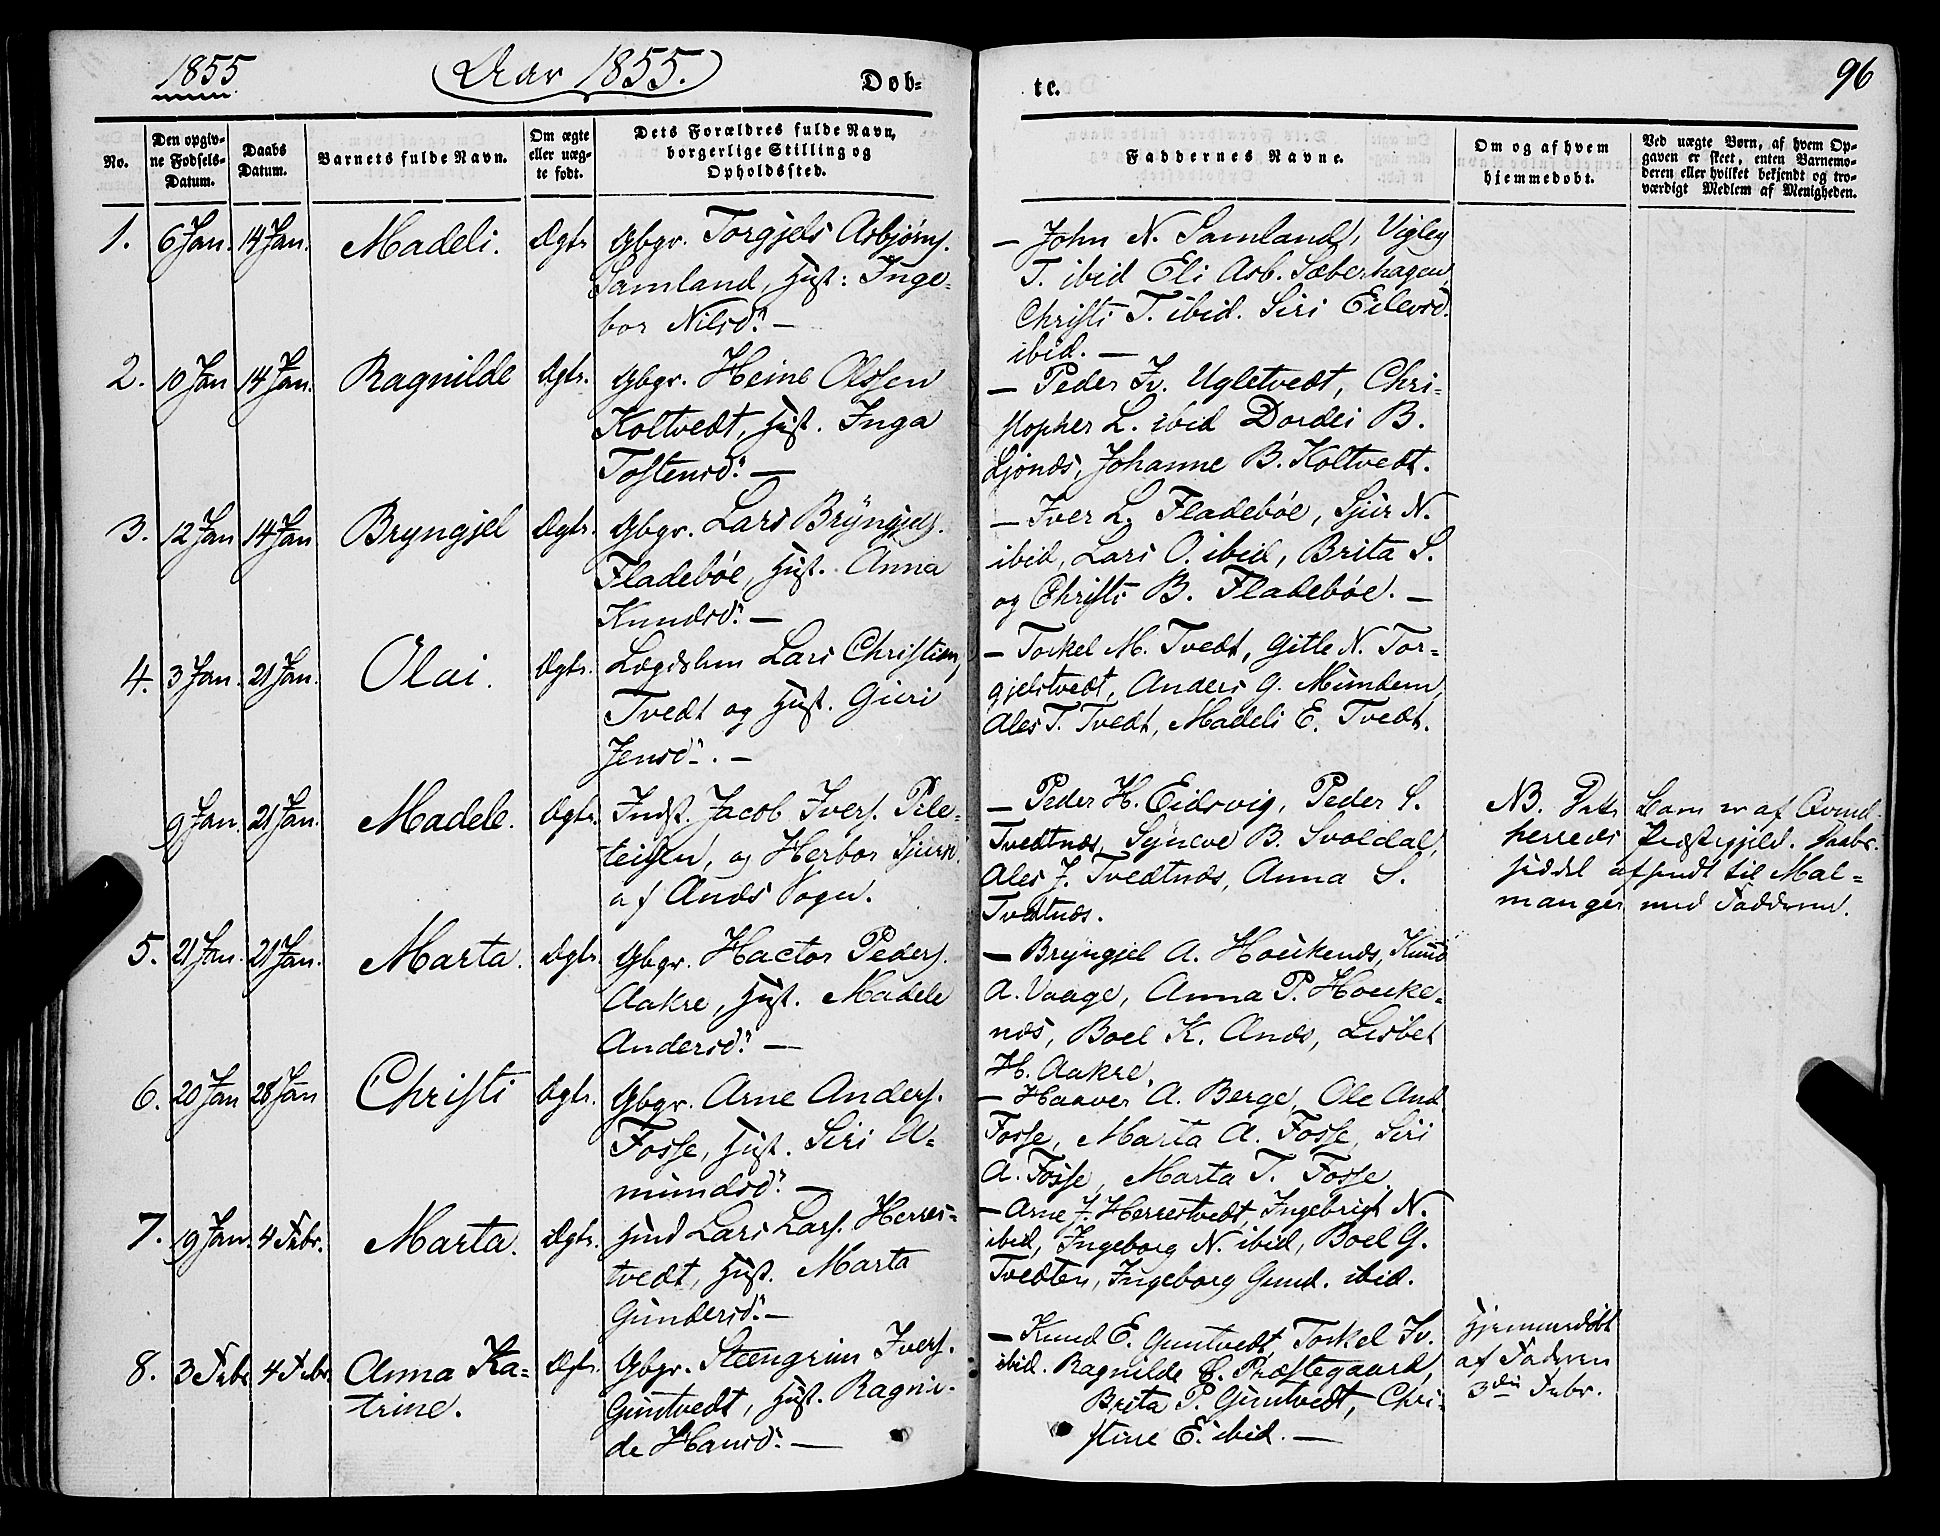 1855
Aar 1855.
Døb-
te.
96
No.
Den opgiv-
ne Fødsels-
Datum.
Daabs
Datum.
Barnets fulde Navn.
Om ægte
eller uæg-
te født.
Dets Forældres fulde Navn,
borgerlige Stilling og
Opholdssted.
Faddernes Navne.
Om og af hvem
hjemmedøbt.
Ved uægte Børn, af hvem Op-
gaven er skeet, enten Barnemo-
deren eller hvilket bekjendt og tro-
værdigt Medlem af Menigheden.
1. 6 Jan. 14 Jan. Madeli. Ægte Gbgr. Torgjels Asbjørns.
Samland, Hust: Inge-
bor Nilsd: —
— John N. Samland, Vigley
T. ibid Eli Asb. Sæberhagen,
Christi T. ibid. Siri Eilevsd.
ibid. —
2. 10 Jan 14 Jan. Ragnilde Ægte. Gbgr. Heine Olssen
Koltvedt, Hust. Inga
Tostensd: —
— Peder Iv. Ugletvedt, Chri-
stopher L. ibid Dordei B.
Ljonds, Johanne B. Koltvedt.
3. 12 Jan 14 Jan Bryngjel Ægte. Gbgr. Lars Bryngjels.
Fladebøe, Hust. Anna
Knudsd: —
— Iver L. Fladebøe, Sjur N.
ibid, Lars O. ibid, Brita S.
og Christi B. Fladebøe. —
4. 3 Jan. 21 Jan. Olai. Ægte. Lægdslem Lars Christian,
Tvedt og Hust. Guri
Jensd:. —
— Torkel M. Tvedt, Gitle N. Tor-
gjelstvedt, Anders G. Mundem,
Ales T. Tvedt, Madeli E. Tvedt.
9 Jan. 21 Jan. Madele. Ægte. Indst. Jacob Ivers. Pele-
teigen, og Herbor Sjursd.
af Ands Sogn.
— Peder H. Eidsvig, Peder S.
Tvedtnæs, Syneve B. Svoldal,
Ales J. Tvedtnæs, Anna S.
Tvedtnæs.
NB.
herreds
siddel
manger
Barn er af Qvind-
Præstegjeld. Daabs-
afsendt til Mal-
med Fadderne.
5. 21 Jan. 21 Jan. Marta. Ægte. Gbgr. Hactor Peders.
Aakre, Hust. Madele
Andersd: —
— Bryngjel A. Houkenæs, Knud
A. Vaage, Anna P. Houke-
næs, Boel K. Ands, Lisbet
H. Aakre.
6. 20 Jan 28 Jan Christi Ægte. Gbgr. Arne Anders.
Fosse, Hust. Siri A-
mundsd: —
— Haaver A. Berge, Ole And
Fosse, Marta A. Fosse, Siri
A. Fosse, Marta T. Fosse.
7. 19 Jan. 4 Febr. Marta. Ægte. Hmd Lars Lars. Herres-
tvedt, Hust. Marta
Gundersd: —
— Arne J. Herrestvedt, Ingebrigt N.
ibid, Ingeborg N. ibid, Boel G.
Tvedten, Ingeborg Gund. ibid.
8. 3 Febr 4 Febr. Anna Ka-
trine.
Ægte. Gbgr. Steengrim Ivers.
Guntvedt, Hust. Ragnil-
de Hansd: —
— Knud E. Guntvedt, Torkel Iv.
ibid. Ragnilde E. Præstegaard,
Brita P. Guntvedt, Chri-
stine E. ibid. —
Hjemmedøbt
af Faderen
3die Febr.